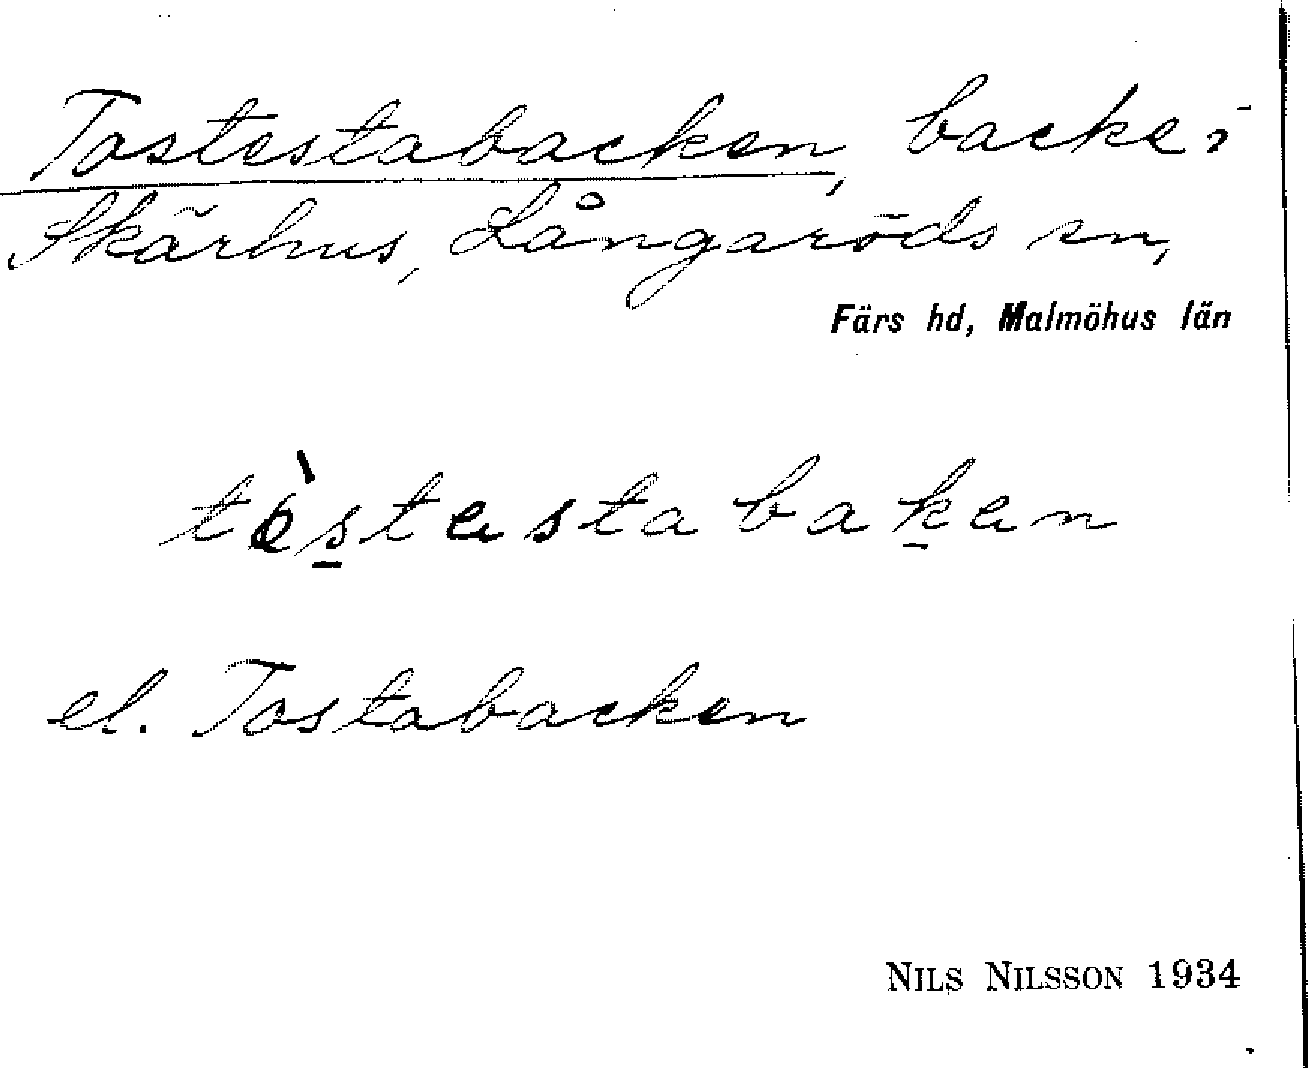 Tostestabacken, backe i
Skärhus, Långaröds sn,
Färs hd, Malmöhus län
tòstestabaken
el. Tostabacken
NILS NILSSON 1934